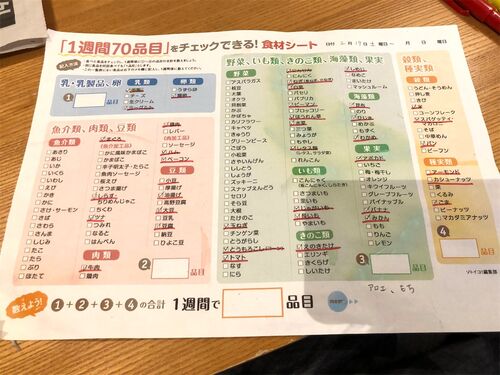 「1週間70品目」をチェックできる! 食材シート
月 日 曜日
乳・乳製品、卵
乳類
卵類
チーズ
生クリーム
うずら卵
1
品目
魚介類、肉類、豆類
魚介類
あさり
あじ
いか
いくら
いわし
えび
かき
かに
さけ・サーモン
さば
さんま
ししゃも
しじみ
たこ
たら
ぶり
ほたて
まぐろ
(魚介加工品)
かに風味かまぼこ
かまぼこ
辛子明太子・たらこ
魚肉ソーセージ
桜えび
さつま揚げ
しらす
ちりめんじゃこ
ちくわ
ツナ
つみれ
なると
はんぺん
肉類
牛肉
鶏肉
豚肉
レバー
(肉加工品)
ソーセージ
ハム
ベーコン
豆類
小豆
厚揚げ
油揚げ
高野豆腐
大豆
豆乳
豆腐
納豆
ひよこ豆
2
品目
野菜、いも類、きのこ類、海藻類、果実
野菜
アスパラガス
枝豆
大葉
オクラ
かぶ
かぼちゃ
カリフラワー
キャベツ
きゅうり
グリーンピース
ごぼう
小松菜
さやいんげん
ししとう
しょうが
ズッキーニ
スナップえんどう
セロリ
そら豆
大根
たけのこ
玉ねぎ
チンゲン菜
とうがらし
とうもろこし・コーン
トマト
なす
にら
にんじん
にんにく
白菜
パセリ
パプリカ
ピーマン
ブロッコリー
ほうれん草
水菜
三つ葉
みょうが
もやし
レタス
れんこん
いも類
こんにゃく
さつまいも
里いも
じゃがいも
長いも
やまいも
きのこ類
えのきたけ
エリンギ
きくらげ
しいたけ
しめじ
なめこ
まいたけ
マッシュルーム
海藻類
昆布
のり
ひじき
めかぶ
もずく
わかめ
果実
アボカド
いちご
梅・梅干し
オレンジ
キウイフルーツ
グレープフルーツ
パイナップル
バナナ
みかん
もも
りんご
レモン
3
品目
穀類、
種実類
穀類
うどん・そうめん
米
コーンフレーク
スパゲッティ・
マカロニ
そば
中華めん
パン
ビーフン
種実類
アーモンド
カシューナッツ
栗
くるみ
ごま
ピーナッツ
マカダミアナッツ
4
品目
ソトイコ!編集部
アロエ、もち
数えよう! 1+2+3+4の合計 1週間で 品目